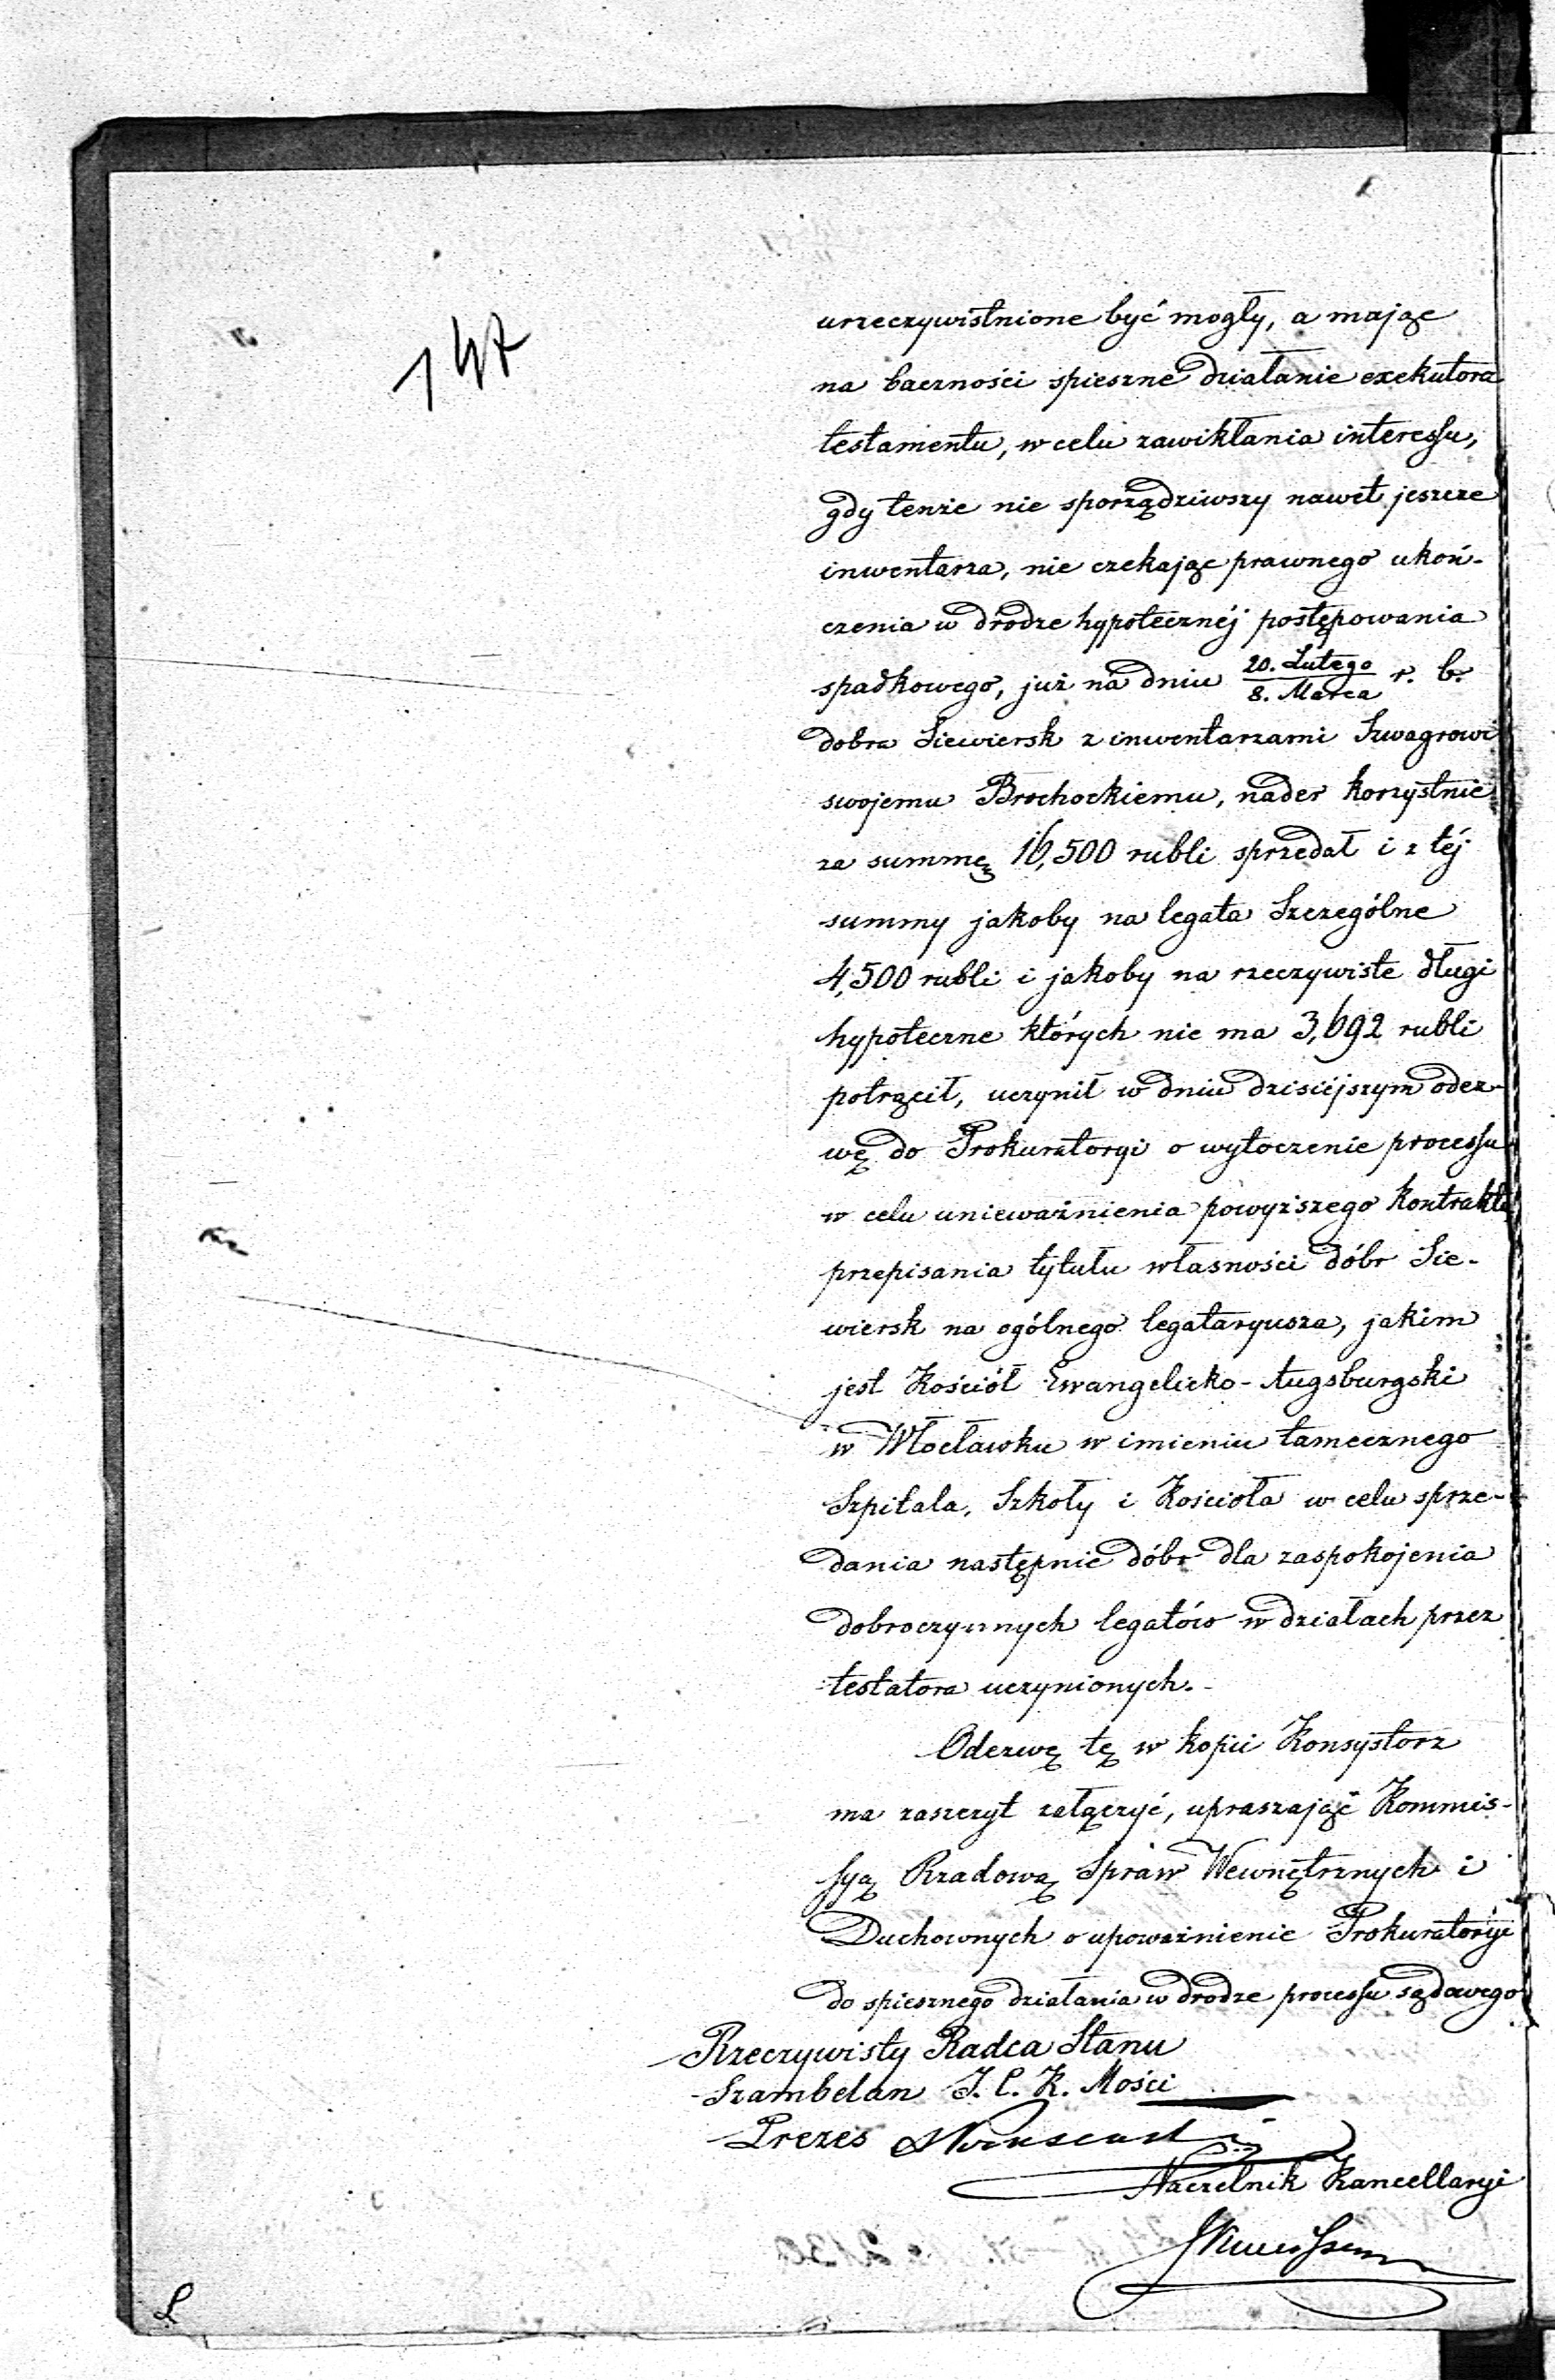 147
urzeczywistnione być mogły, a mając
na baczności spieszne działanie exekutora
testamentu, w celu zawikłania interessu,
gdy tenże nie sporządziwszy nawet jeszcze
inwentarza, nie czekając prawnego ukoń-
czenia w drodze hypotecznéj postępowania
spadkowego, już na dniu 20. Lutego / 8. Marca r. b.
dobra Siewiersk z inwentarzami Szwagrowi
swojemu Brochockiemu, nader korzystnie
za summę 16,500 rubli sprzedał i z téj
summy jakoby na legata Szczególne
4,500 rubli i jakoby na rzeczywiste długi
hypoteczne których nie ma 3,692 rubli
potrącił, uczynił w dniu dzisiéjszym odez-
wę do Prokuratoryi o wytoczenie processu
w celu unieważnienia powyższego kontraktu
przepisania tytułu własności dóbr Sie-
wiersk na ogólnego legataryusza, jakim
jest Kościół Ewangelicko-Augsburgski
w Włocławku w imieniu tamecznego
Szpitala, Szkoły i Kościoła w celu sprze-
dania następnie dóbr dla zaspokojenia
dobroczynnych legatów w działach przez
testatora uczynionych.-
Odezwę tę w kopii Konsystorz
ma zaszczyt załączyć, upraszając Kommis-
syą Rządową Spraw Wewnętrznych i
Duchownych o upoważnienie Prokuratoryi
do spiesznego działania w drodze processu sądowego
Rzeczywisty Radca Stanu
Szambelan J. C. K. Mości
Prezes
Naczelnik Kancellaryi
L